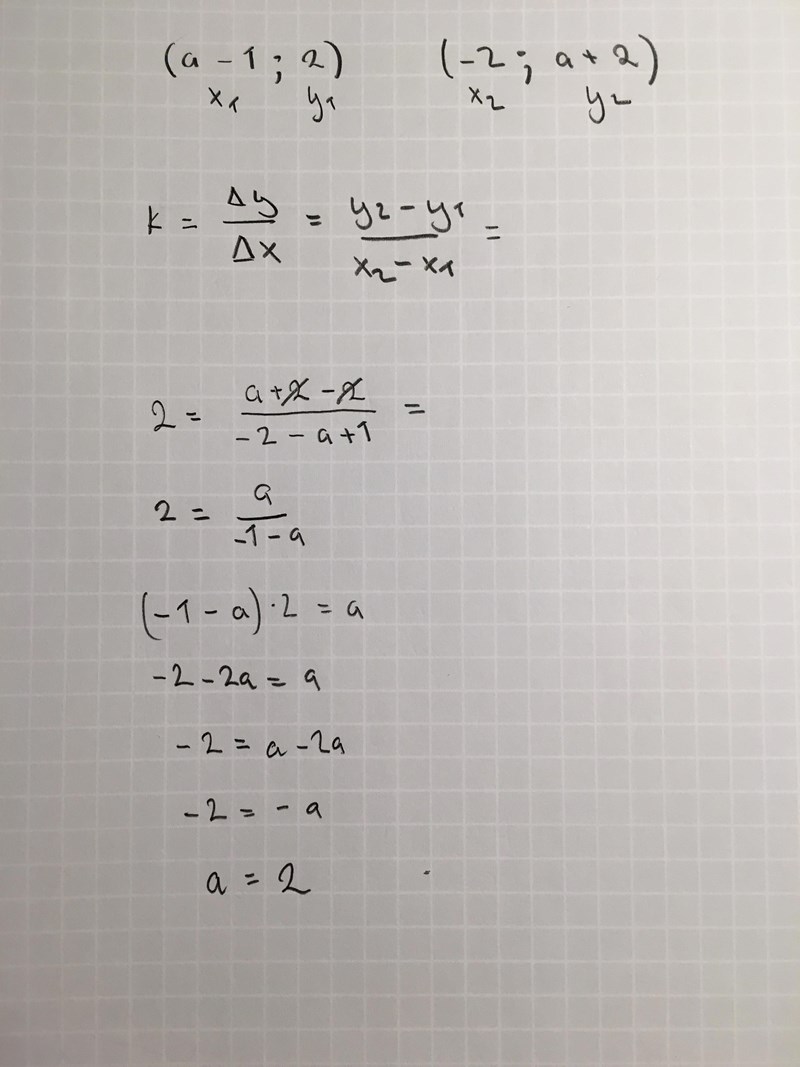 (a - 1 ; 2) (-2 ; a + 2)
x₁ y₁ x₂ y₂
k = Δy/Δx = (y₂ - y₁)/(x₂ - x₁) =
2 = (a + 2 - 2)/(-2 - a + 1) =
2 = a/(-1 - a)
(-1 - a) · 2 = a
-2 - 2a = a
-2 = a - 2a
-2 = - a
a = 2